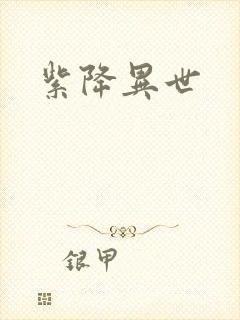 紫降異世
銀甲